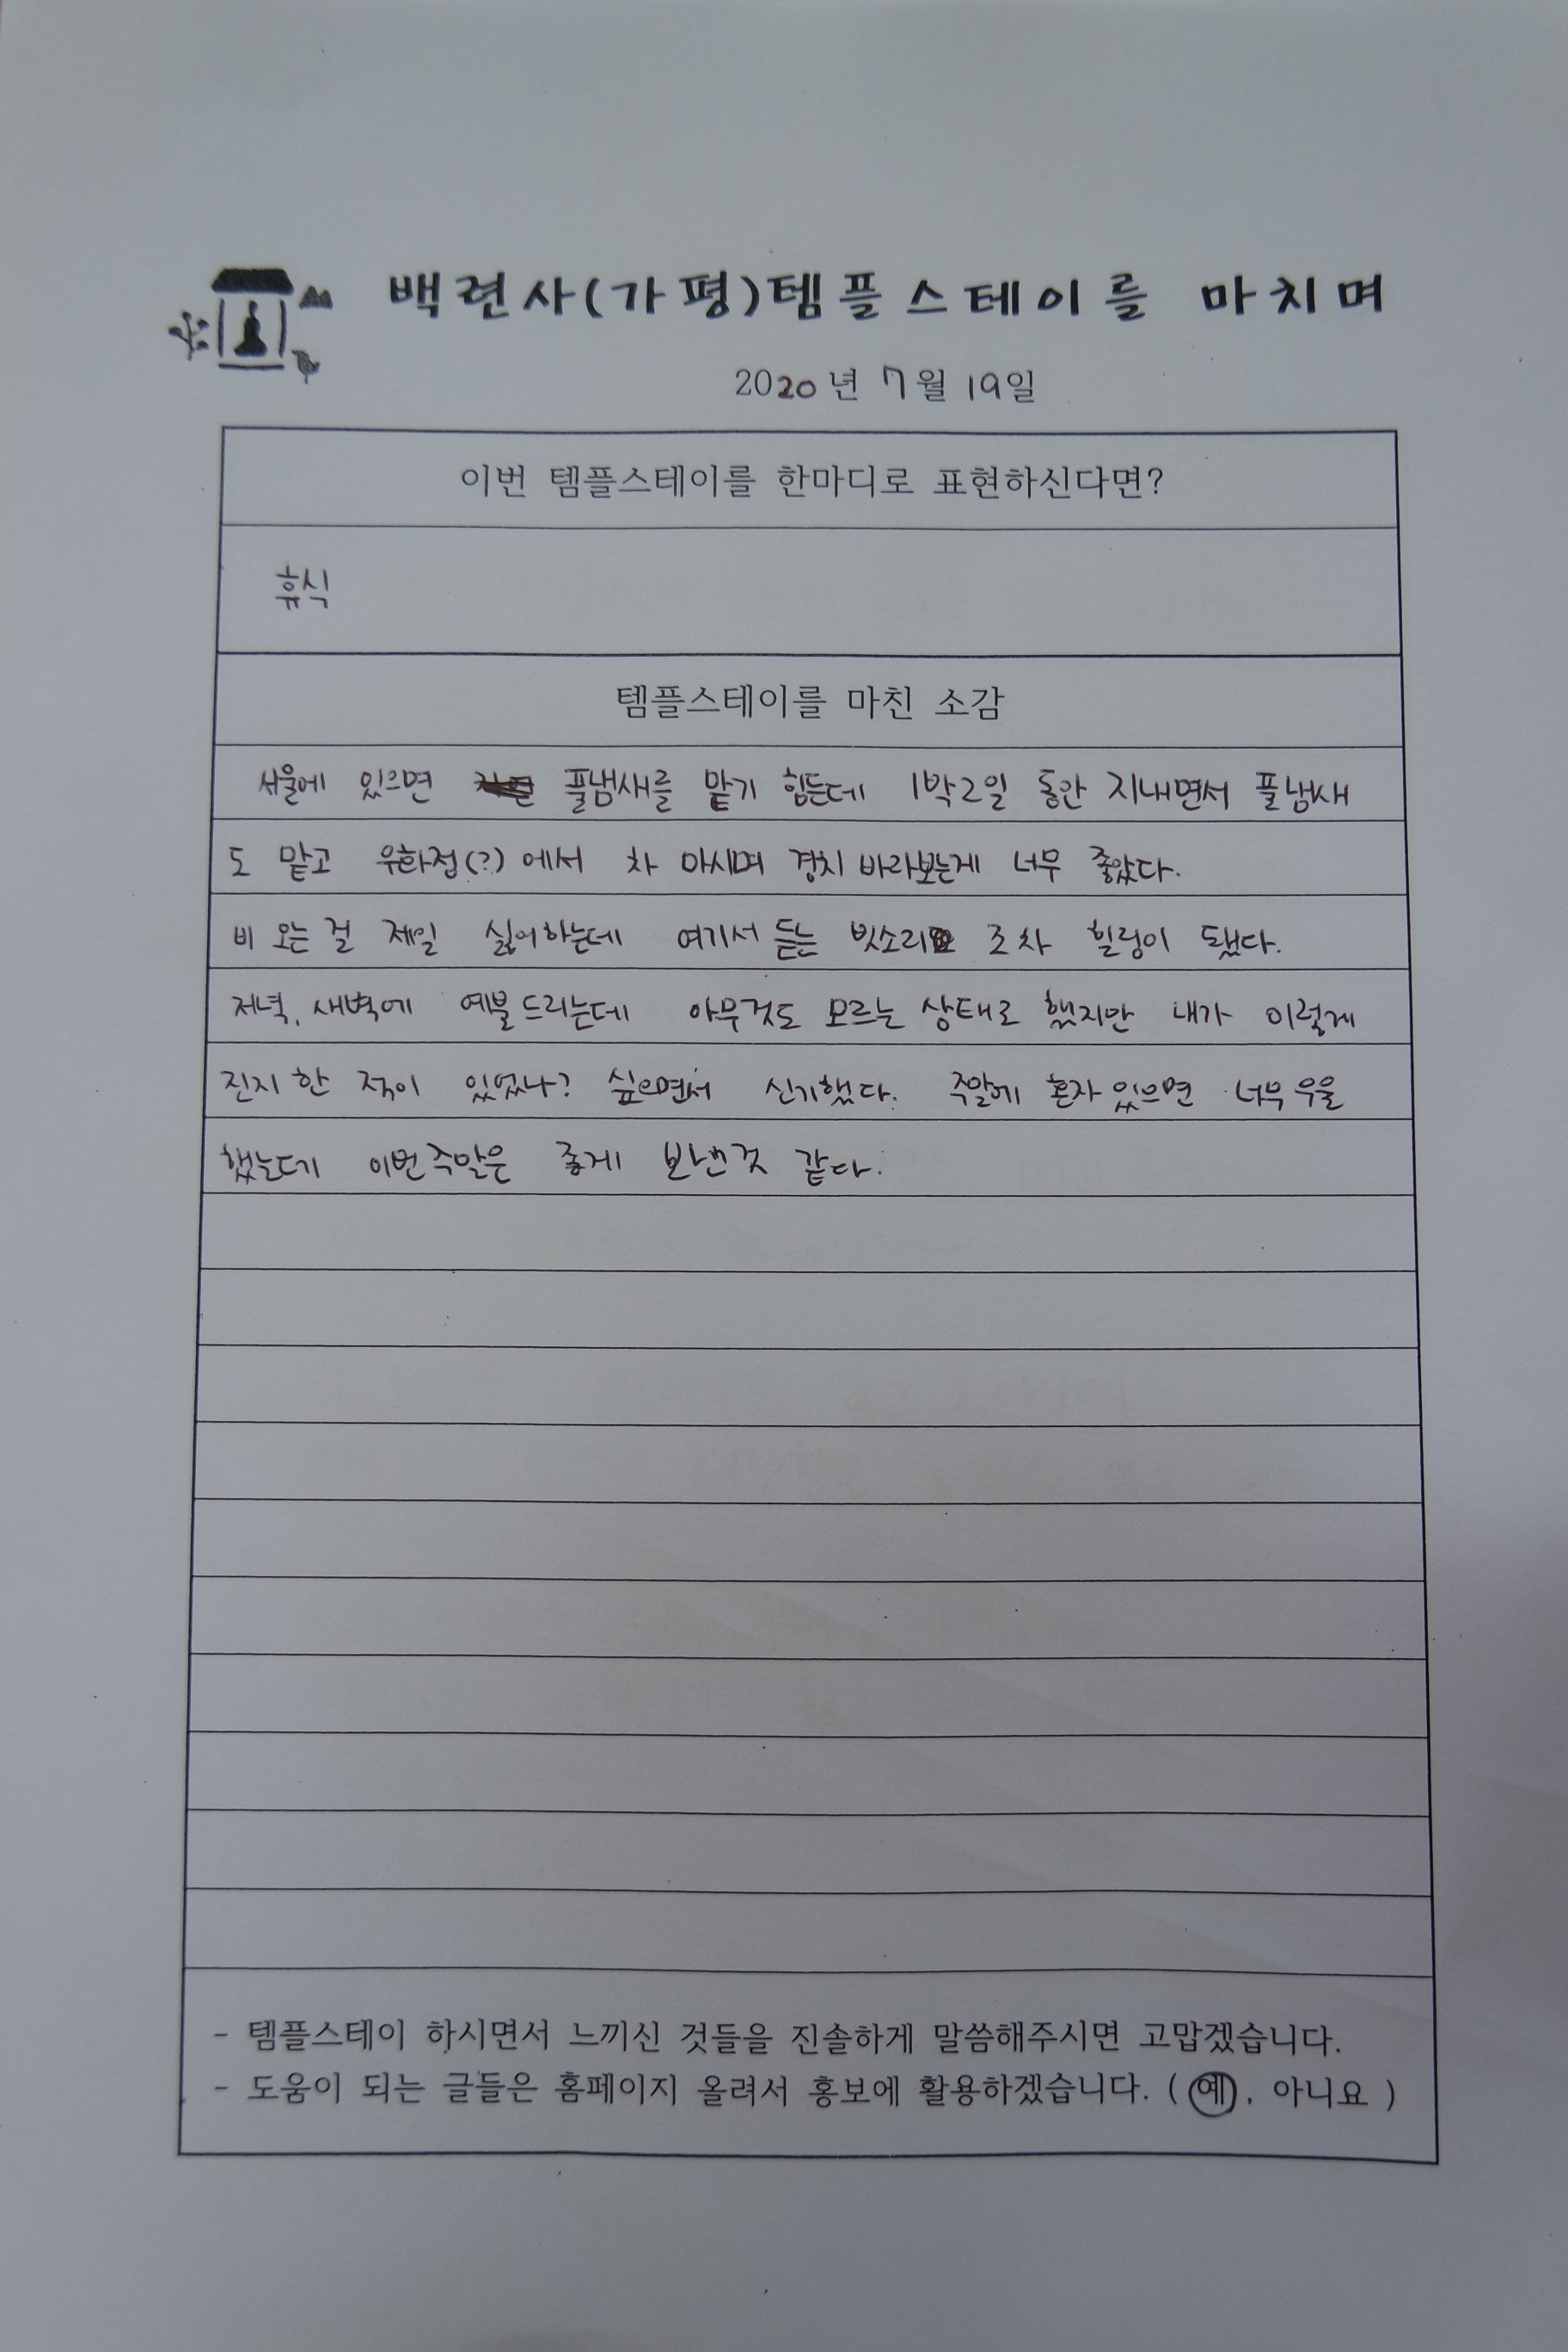 백련사(가평)템플스테이를 마치며
2020년 7월 19일
이번 템플스테이를 한마디로 표현하신다면?
휴식
템플스테이를 마친 소감
서울에 있으면 풀냄새를 맡기 힘든데 1박2일 동안 지내면서 풀냄새
도 맡고 우화정(?)에서 차 마시며 경치 바라보는게 너무 좋았다.
비 오는걸 제일 싫어하는데 여기서 듣는 빗소리 조차 힐링이 됐다.
저녁, 새벽에 예불드리는데 아무것도 모르는 상태로 했지만 내가 이렇게
진지한 적이 있었나? 싶으면서 신기했다. 주말에 혼자있으면 너무우울
했는데 이번주말은 좋게 보낸것 같다.
- 템플스테이 하시면서 느끼신 것들을 진솔하게 말씀해주시면 고맙겠습니다.
- 도움이 되는 글들은 홈페이지 올려서 홍보에 활용하겠습니다. ( 예, 아니요 )